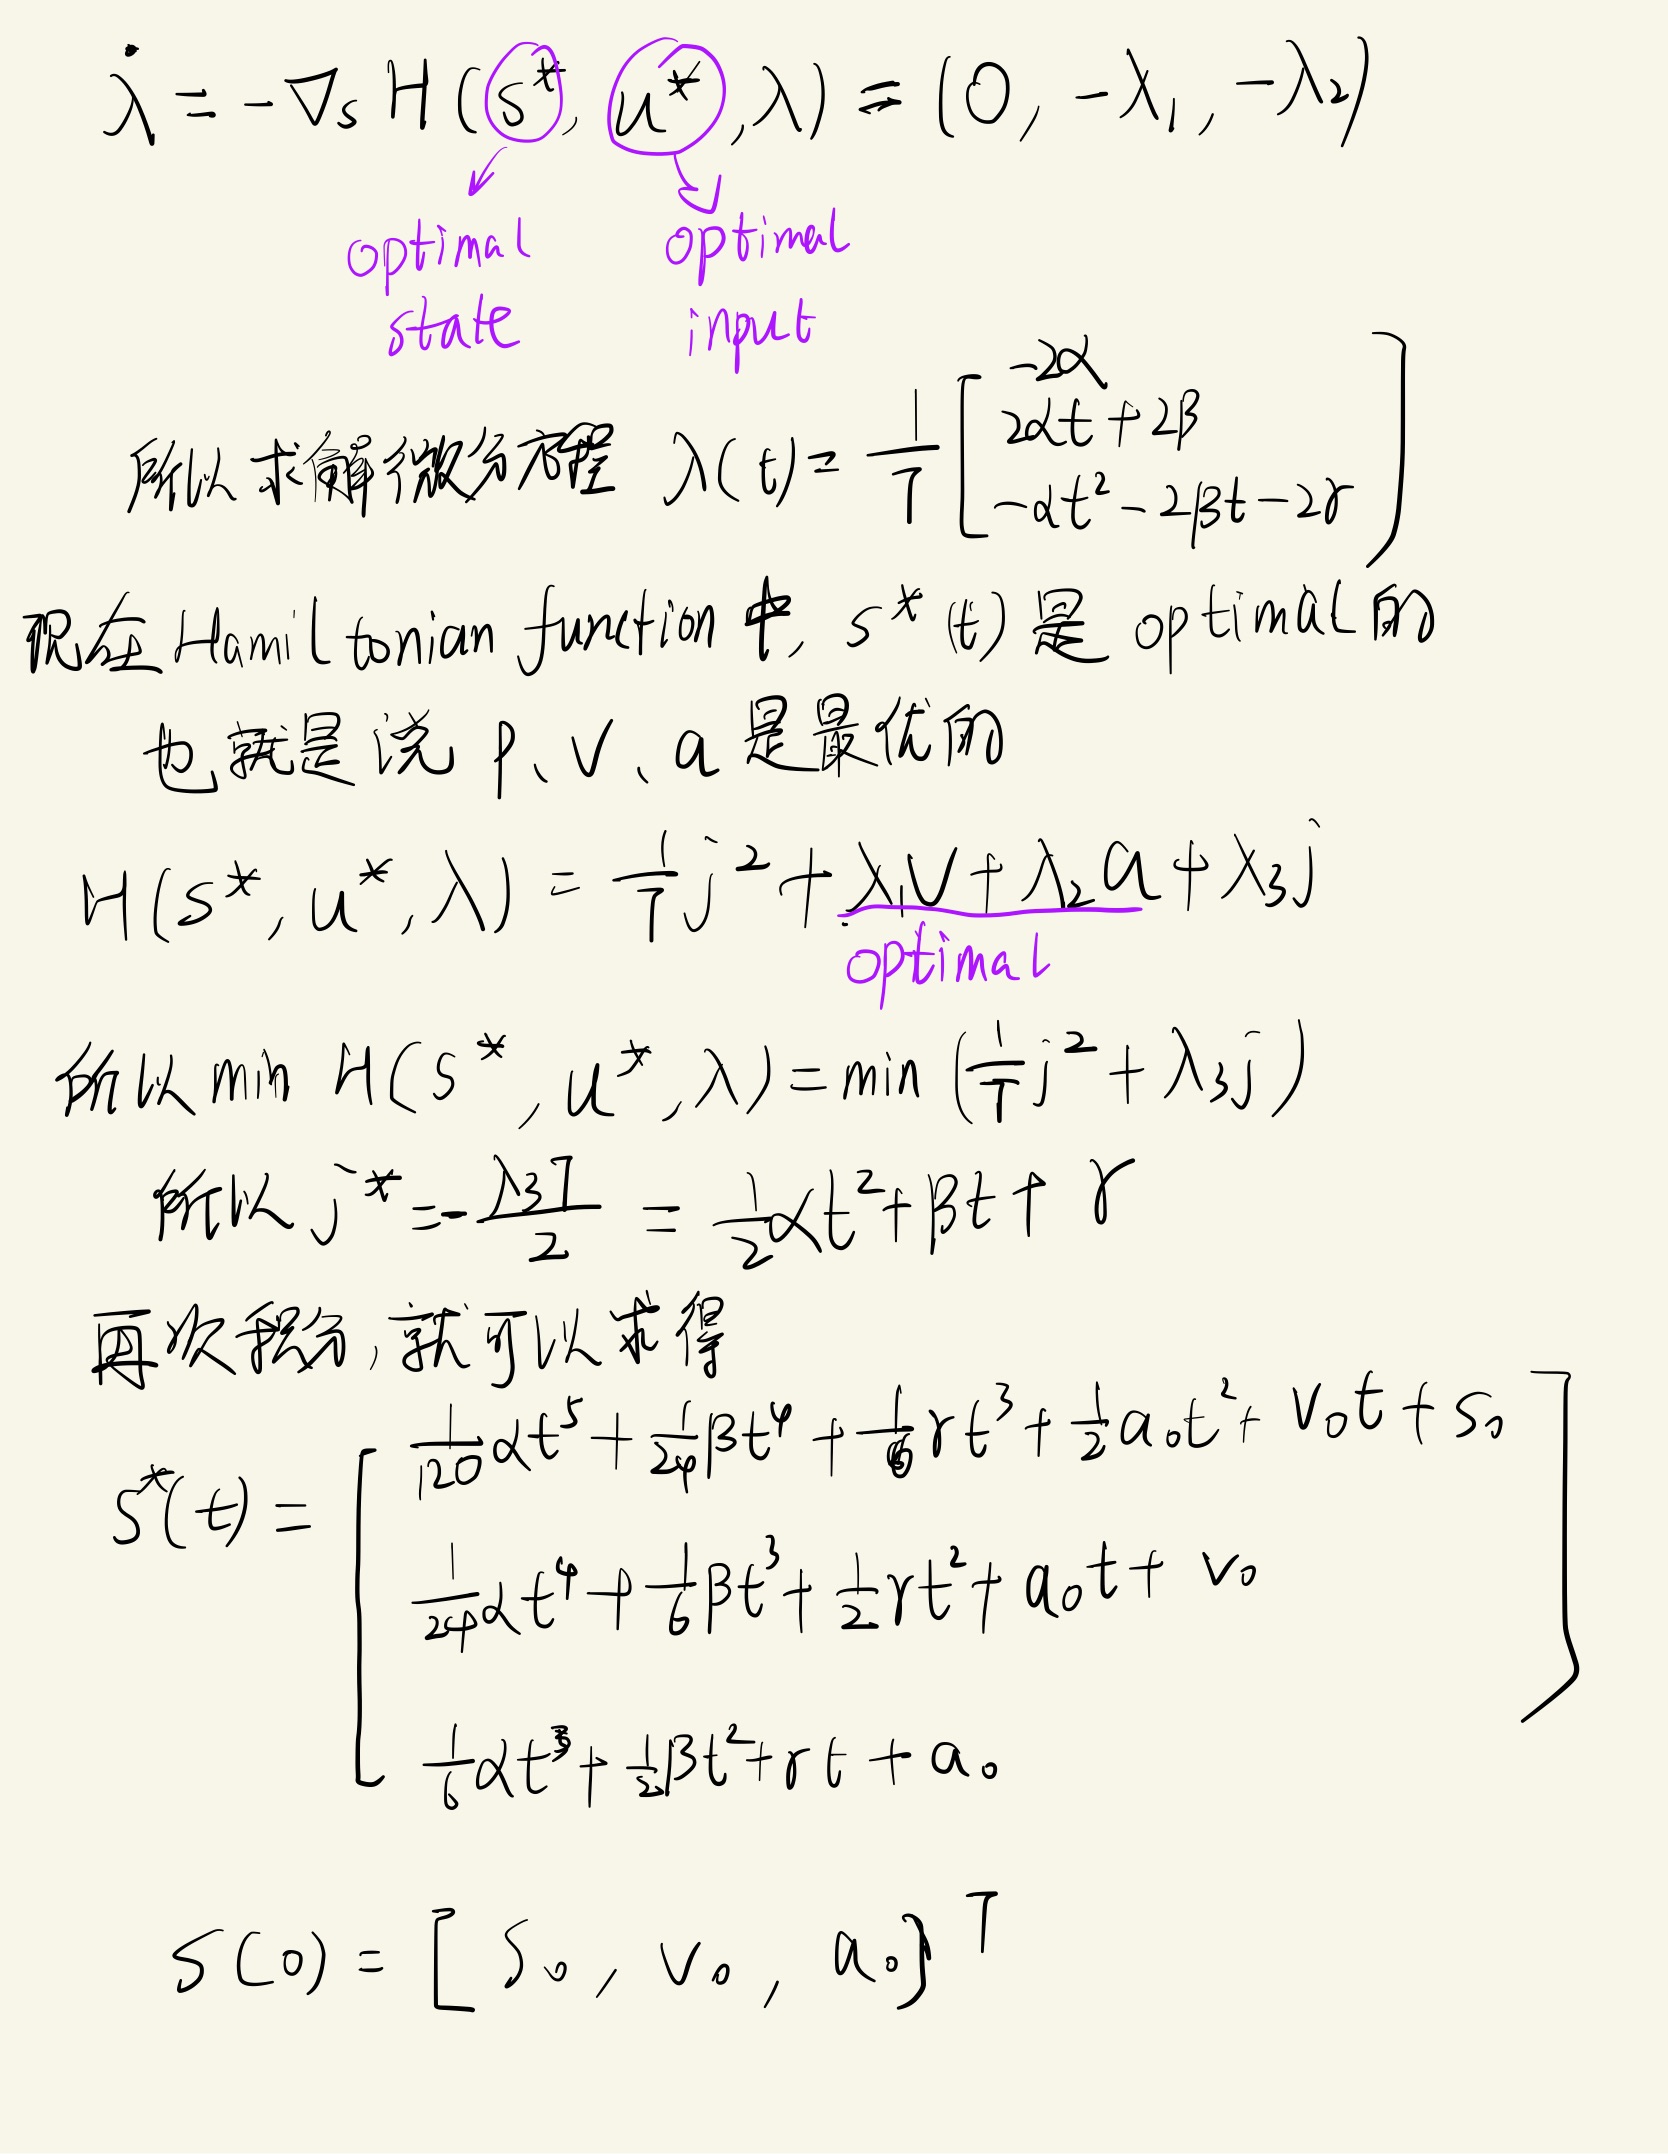 λ̇ = -∇s H(s*, u*, λ) = (0, -λ₁, -λ₂)
optimal state
optimal input
所以求解微分方程 λ(t) = 1/T [-2α
2αt + 2β
-αt² - 2βt - 2γ]
现在 Hamiltonian function 中, s*(t) 是 optimal 的
也就是说 p、v、a 是最优的
H(s*, u*, λ) = 1/T j² + λ₁v + λ₂a + λ₃j
optimal
所以 min H(s*, u*, λ) = min (1/T j² + λ₃j)
所以 j* = -λ₃T/2 = 1/2 αt² + βt + γ
再次积分, 就可以求得
s*(t) = [1/120 αt⁵ + 1/24 βt⁴ + 1/6 γt³ + 1/2 a₀t² + v₀t + s₀
1/24 αt⁴ + 1/6 βt³ + 1/2 γt² + a₀t + v₀
1/6 αt³ + 1/2 βt² + γt + a₀]
s(0) = [s₀, v₀, a₀]ᵀ